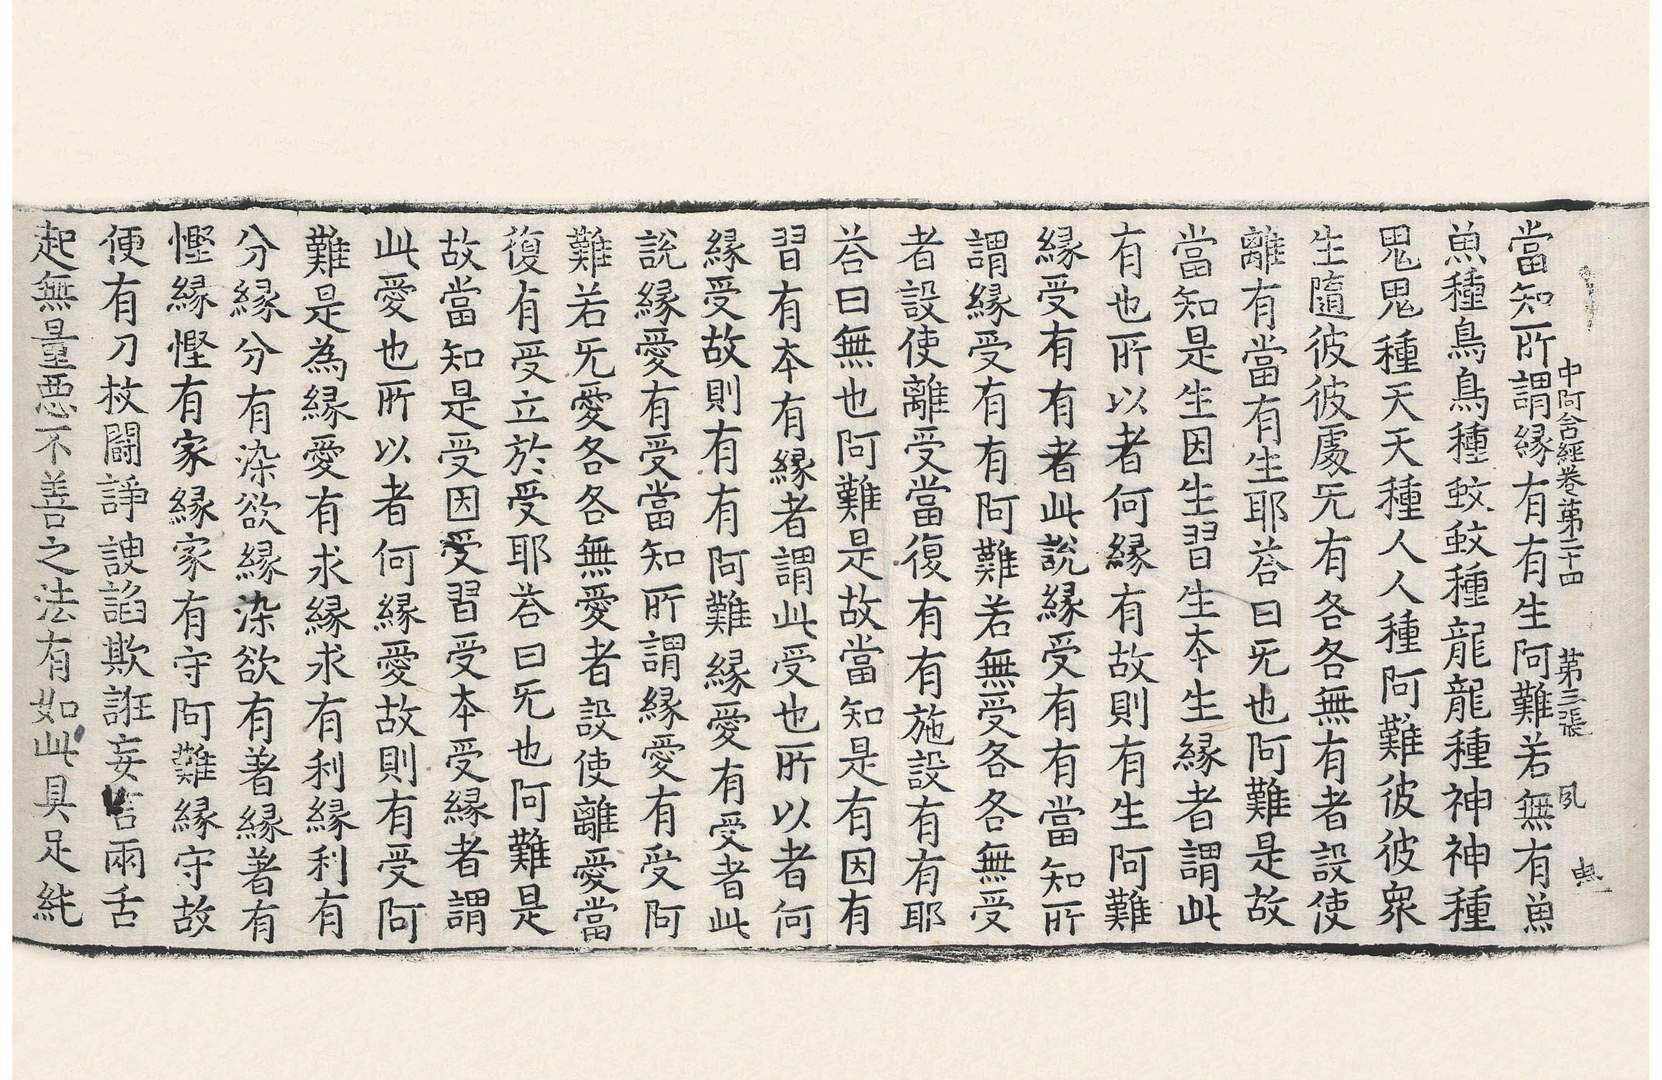 中阿含經卷第二十四 第三張 夙
當知所謂縁有有生阿難若無有魚
魚種鳥鳥種蚊蚊種龍龍種神神種
鬼鬼種天天種人人種阿難彼彼衆
生隨彼彼處无有各各無有者設使
離有當有生耶荅曰无也阿難是故
當知是生因生習生本生縁者謂此
有也所以者何縁有故則有生阿難
縁受有有者此說縁受有有當知所
謂縁受有有阿難若無受各各無受
者設使離受當復有有施設有有耶
荅曰無也阿難是故當知是有因有
習有本有縁者謂此受也所以者何
縁受故則有有阿難縁愛有受者此
說縁愛有受當知所謂縁愛有受阿
難若无愛各各無愛者設使離愛當
復有受立於受耶荅曰无也阿難是
故當知是受因受習受本受縁者謂
此愛也所以者何縁愛故則有受阿
難是為縁愛有求縁求有利縁利有
分縁分有染欲縁染欲有著縁著有
慳縁慳有家縁家有守阿難縁守故
便有刀杖鬪諍諛諂欺誑妄言兩舌
起無量悪不善之法有如此具足純